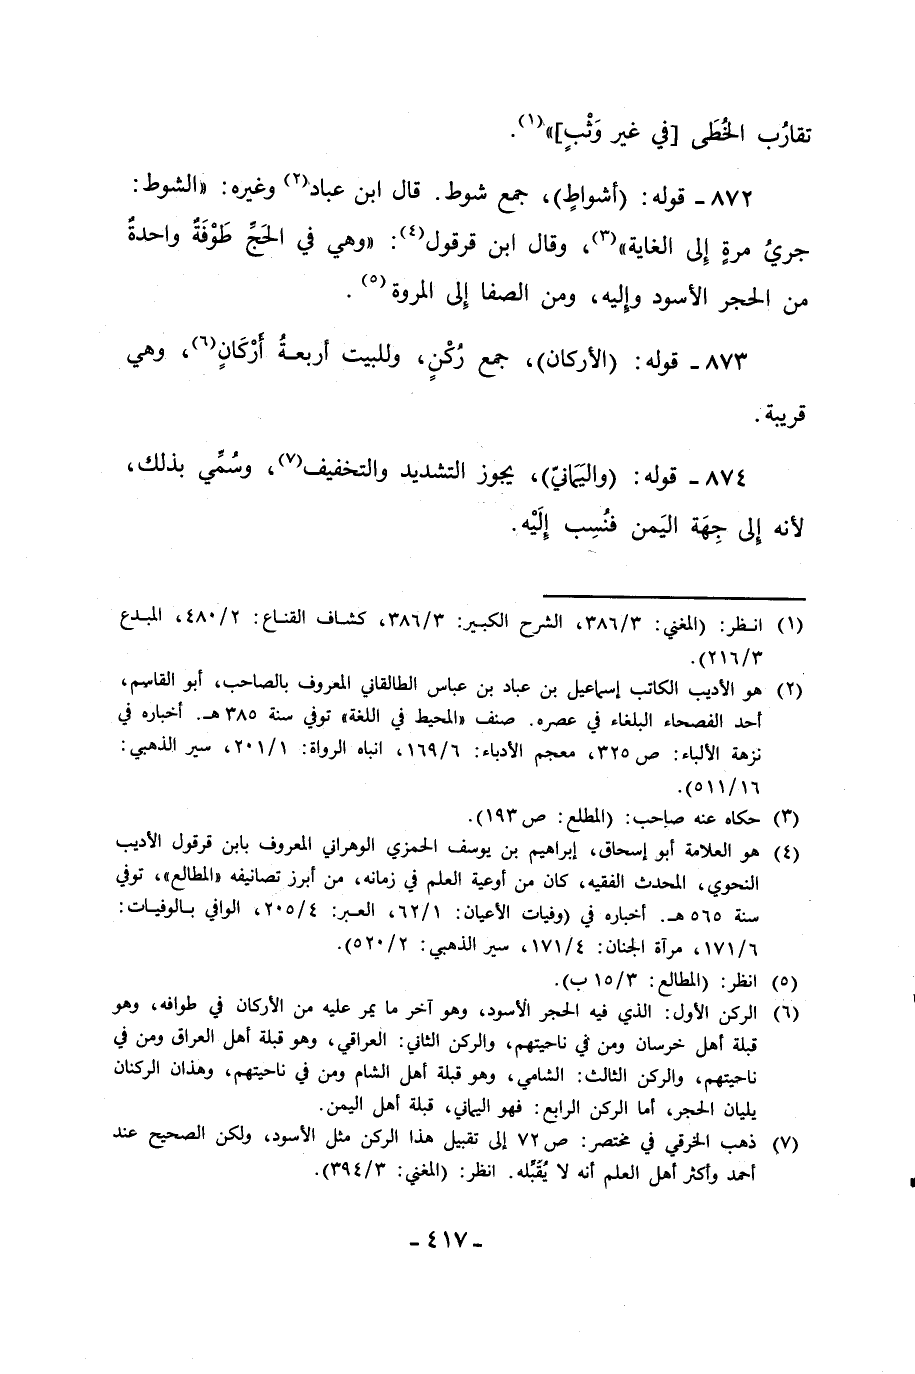 تقارُب الخُطَى [في غير وَثْبٍ]»(١).
٨٧٢ ـ قوله: (أشواطٍ)، جمع شوط. قال ابن عباد(٢) وغيره: «الشوط:
جريُ مرةٍ إِلى الغاية»(٣)، وقال ابن قرقول(٤): «وهي في الحَجِّ طَوْفَةٌ واحدةٌ
من الحجر الأسود وإِليه، ومن الصفا إِلى المروة(٥).
٨٧٣ ـ قوله: (الأركان)، جمع رُكْنٍ، وللبيت أربعةُ أَرْكَانٍ(٦)، وهي
قريبة.
٨٧٤ ـ قوله: (واليَمَانيّ)، يجوز التشديد والتخفيف(٧)، وسُمِّي بذلك،
لأنه إِلى جِهَة اليَمن فنُسِب إِلَيْه.
(١) انظر: (المغني: ٣٨٦/٣، الشرح الكبير: ٣٨٦/٣، كشاف القناع: ٤٨٠/٢، المبدع
٢١٦/٣).
(٢) هو الأديب الكاتب إسماعيل بن عباد بن عباس الطالقاني المعروف بالصاحب، أبو القاسم،
أحد الفصحاء البلغاء في عصره. صنف «المحيط في اللغة» توفي سنة ٣٨٥ هـ. أخباره في
نزهة الألباء: ص ٣٢٥، معجم الأدباء: ١٦٩/٦، انباه الرواة: ٢٠١/١، سير الذهبي:
٥١١/١٦).
(٣) حكاه عنه صاحب: (المطلع: ص ١٩٣).
(٤) هو العلامة أبو إسحاق، إبراهيم بن يوسف الحمزي الوهراني المعروف بابن قرقول الأديب
النحوي، المحدث الفقيه، كان من أوعية العلم في زمانه، من أبرز تصانيفه «المطالع»، توفي
سنة ٥٦٥ هـ. أخباره في (وفيات الأعيان: ٦٢/١، العبر: ٢٠٥/٤، الوافي بالوفيات:
١٧١/٦، مرآة الجنان: ١٧١/٤، سير الذهبي: ٥٢٠/٢).
(٥) انظر: (المطالع: ١٥/٣ ب).
(٦) الركن الأول: الذي فيه الحجر الأسود، وهو آخر ما يمر عليه من الأركان في طوافه، وهو
قبلة أهل خرسان ومن في ناحيتهم، والركن الثاني: العراقي، وهو قبلة أهل العراق ومن في
ناحيتهم، والركن الثالث: الشامي، وهو قبلة أهل الشام ومن في ناحيتهم، وهذان الركنان
يليان الحجر، أما الركن الرابع: فهو اليماني، قبلة أهل اليمن.
(٧) ذهب الخرقي في مختصر: ص ٧٢ إلى تقبيل هذا الركن مثل الأسود، ولكن الصحيح عند
أحمد وأكثر أهل العلم أنه لا يُقَبِّله. انظر: (المغني: ٣٩٤/٣).
ـ ٤١٧ ـ